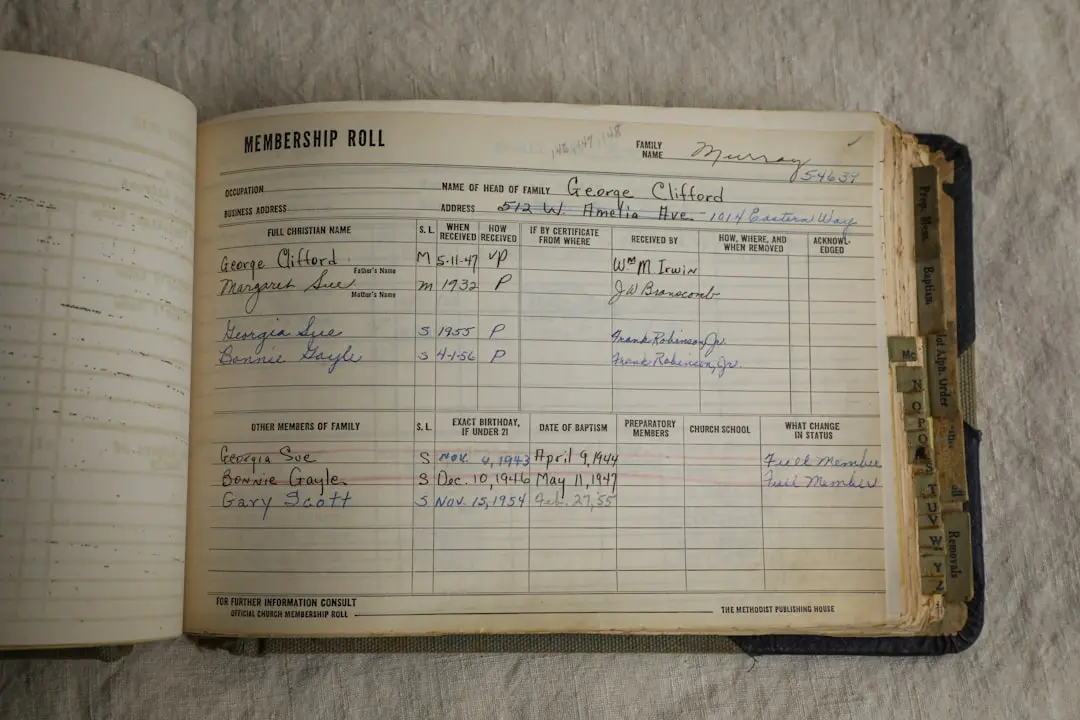 MEMBERSHIP ROLL
148, 147, 148
FAMILY NAME Murray
54639
OCCUPATION NAME OF HEAD OF FAMILY George Clifford
BUSINESS ADDRESS ADDRESS 512 W. Amelia Ave. - 1014 Eastern Way
FULL CHRISTIAN NAME S. L. WHEN RECEIVED HOW RECEIVED IF BY CERTIFICATE FROM WHERE RECEIVED BY HOW, WHERE, AND WHEN REMOVED ACKNOWL-EDGED
George Clifford M 5-11-47 VP Wm M Irwin
Father's Name
Margaret Sue m 1932 P J W Branscomb
Mother's Name
Georgia Sue S 1955 P Frank Robinson, Jr.
Bonnie Gayle S 4-1-56 P Frank Robinson, Jr.
OTHER MEMBERS OF FAMILY S. L. EXACT BIRTHDAY, IF UNDER 21 DATE OF BAPTISM PREPARATORY MEMBERS CHURCH SCHOOL WHAT CHANGE IN STATUS
Georgia Sue S Nov. 6, 1943 April 9, 1944 Full Member
Bonnie Gayle S Dec. 10, 1946 May 11, 1947 Full Member
Gary Scott S Nov. 15, 1954 Feb. 27, 55
FOR FURTHER INFORMATION CONSULT
OFFICIAL CHURCH MEMBERSHIP ROLL THE METHODIST PUBLISHING HOUSE
Prep. Mem.
Baptism
Not Alph. Order
Removals
Mc
N
O
P
S
T
U
V
W
Y
Z